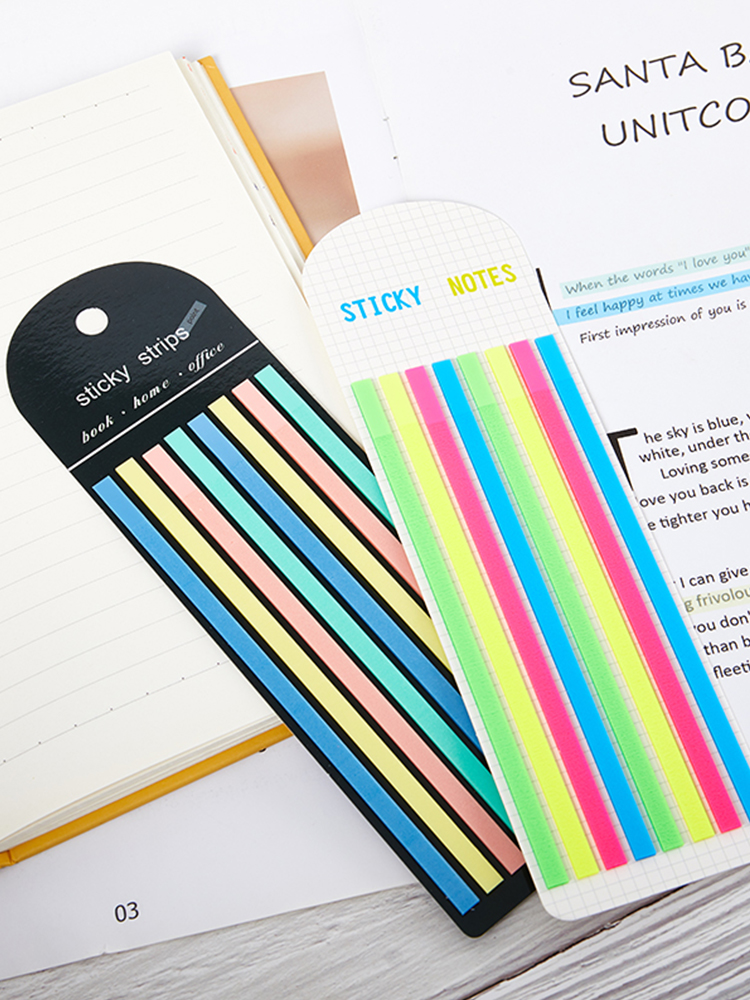 sticky strips
book · home · office
STICKY NOTES
03
SANTA
UNITCO
When the words "I love you"
I feel happy at times we hav
First impression of you is
he sky is blue,
white, under th
Loving some
ove you back is
e tighter you h
I can give
g frivolou
ou don'
than b
fleeti